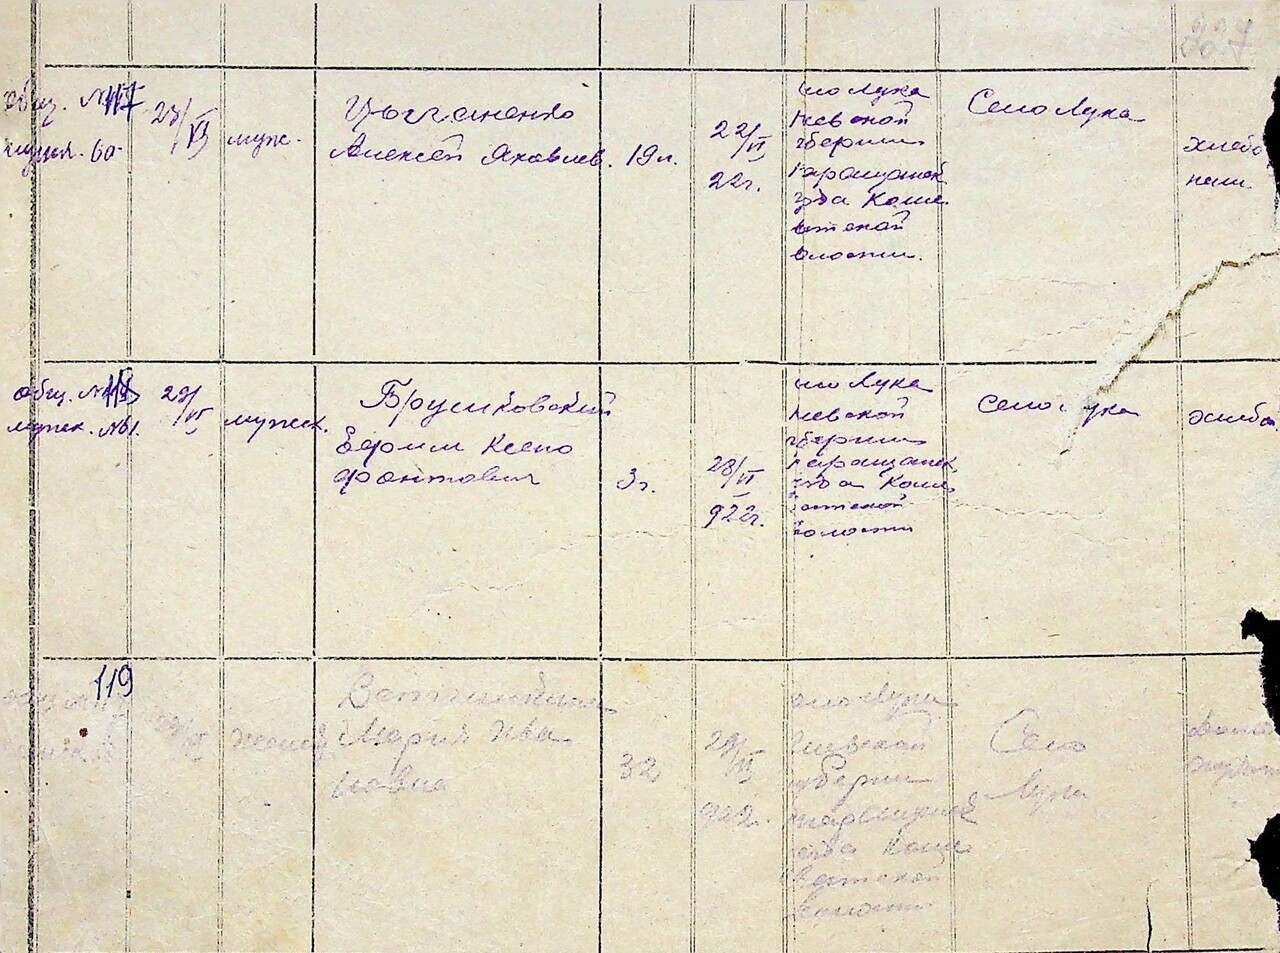 общ. №117
мужск. 60
23/VI
мужс.
Цыганенко
Алексей Яковлев.
19 л.
22/VI
22г.
село Лука
Киевской
губернии
Таращанск
уезда Коше
ватской
волости.
Село Лука
хлебо
паш.
общ. №118
мужск. №61.
29/VI
мужск.
Ефрим Ксено
фонтович
3 г.
28/VI
922г.
село Лука
Киевской
губернии
Таращанск.
уезда Коше
ватской
волости
Село Лука
119
29/VI
женск
Мария Ива
новна
32
29/VI
922.
село Лука
Киевской
губернии
Таращанской
уезда Коше
ватской
волости
Село
Лука